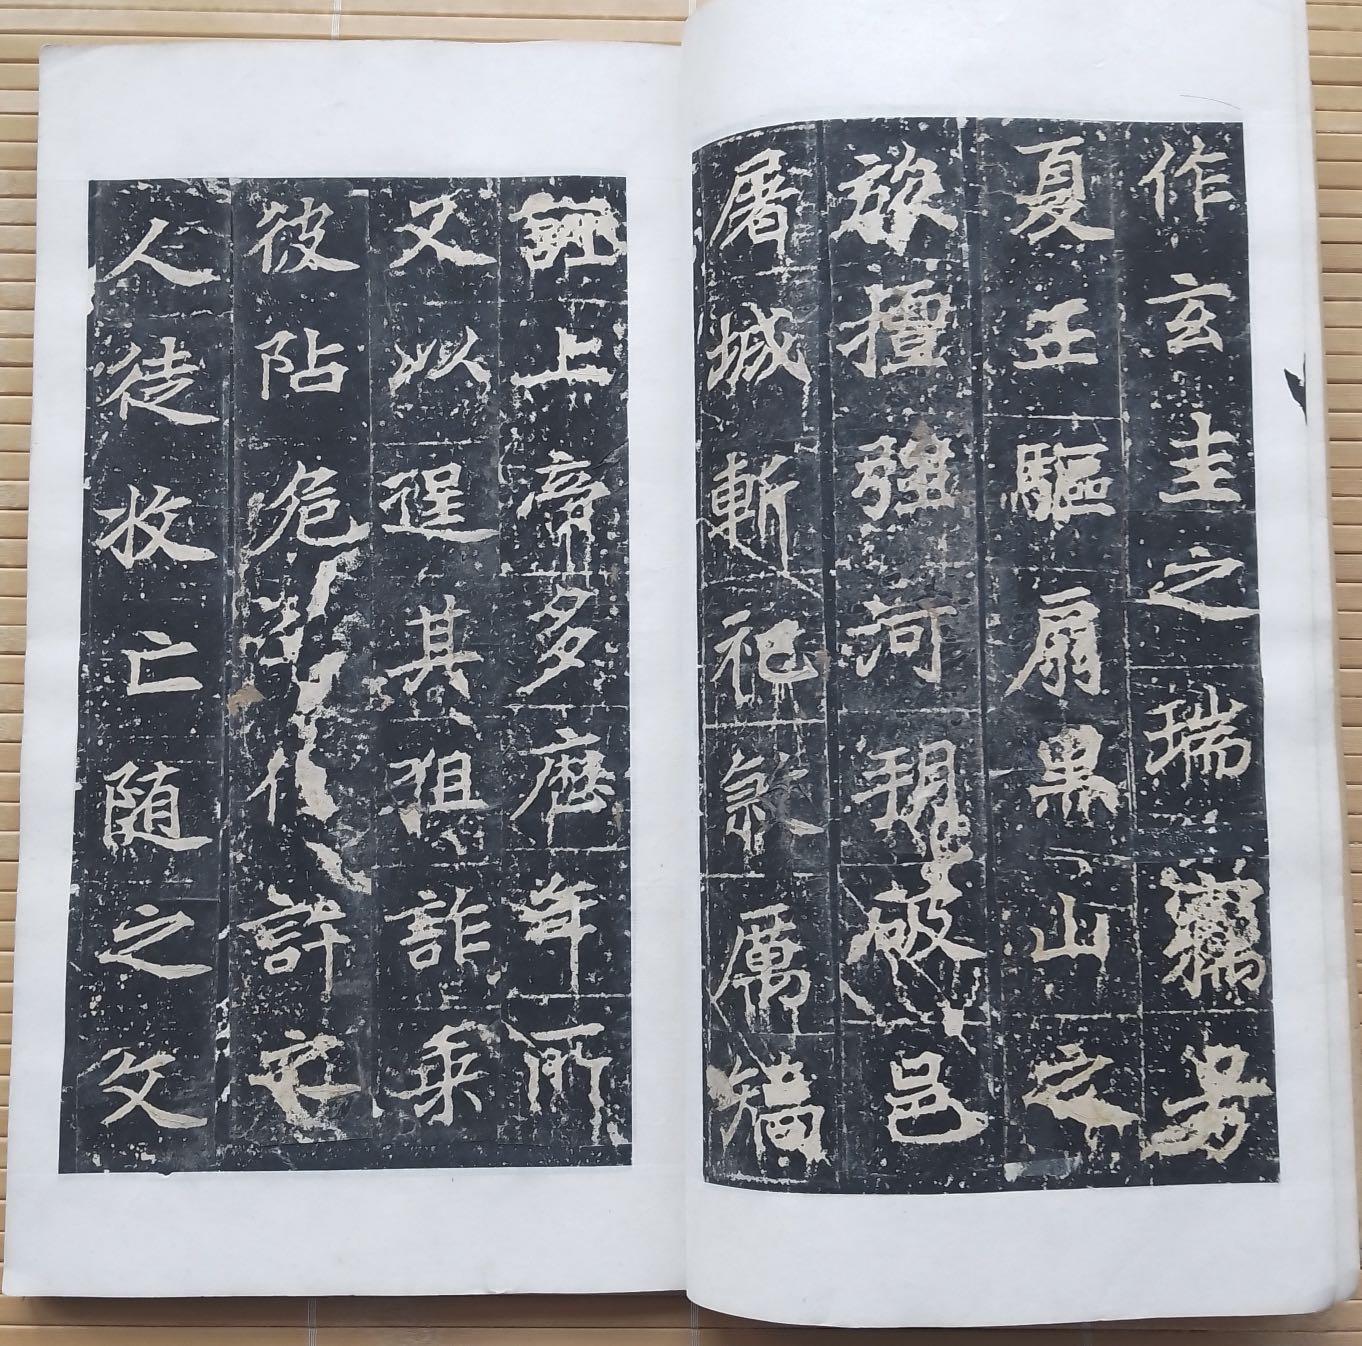 作玄圭之瑞竊号
夏正驅扇黑山之
旅擅強河朔破邑
屠城斬祀煞厲矯
誣上帝多歷年所
又以逞其狙詐乘
彼阽危代許
人徒收亡随之文